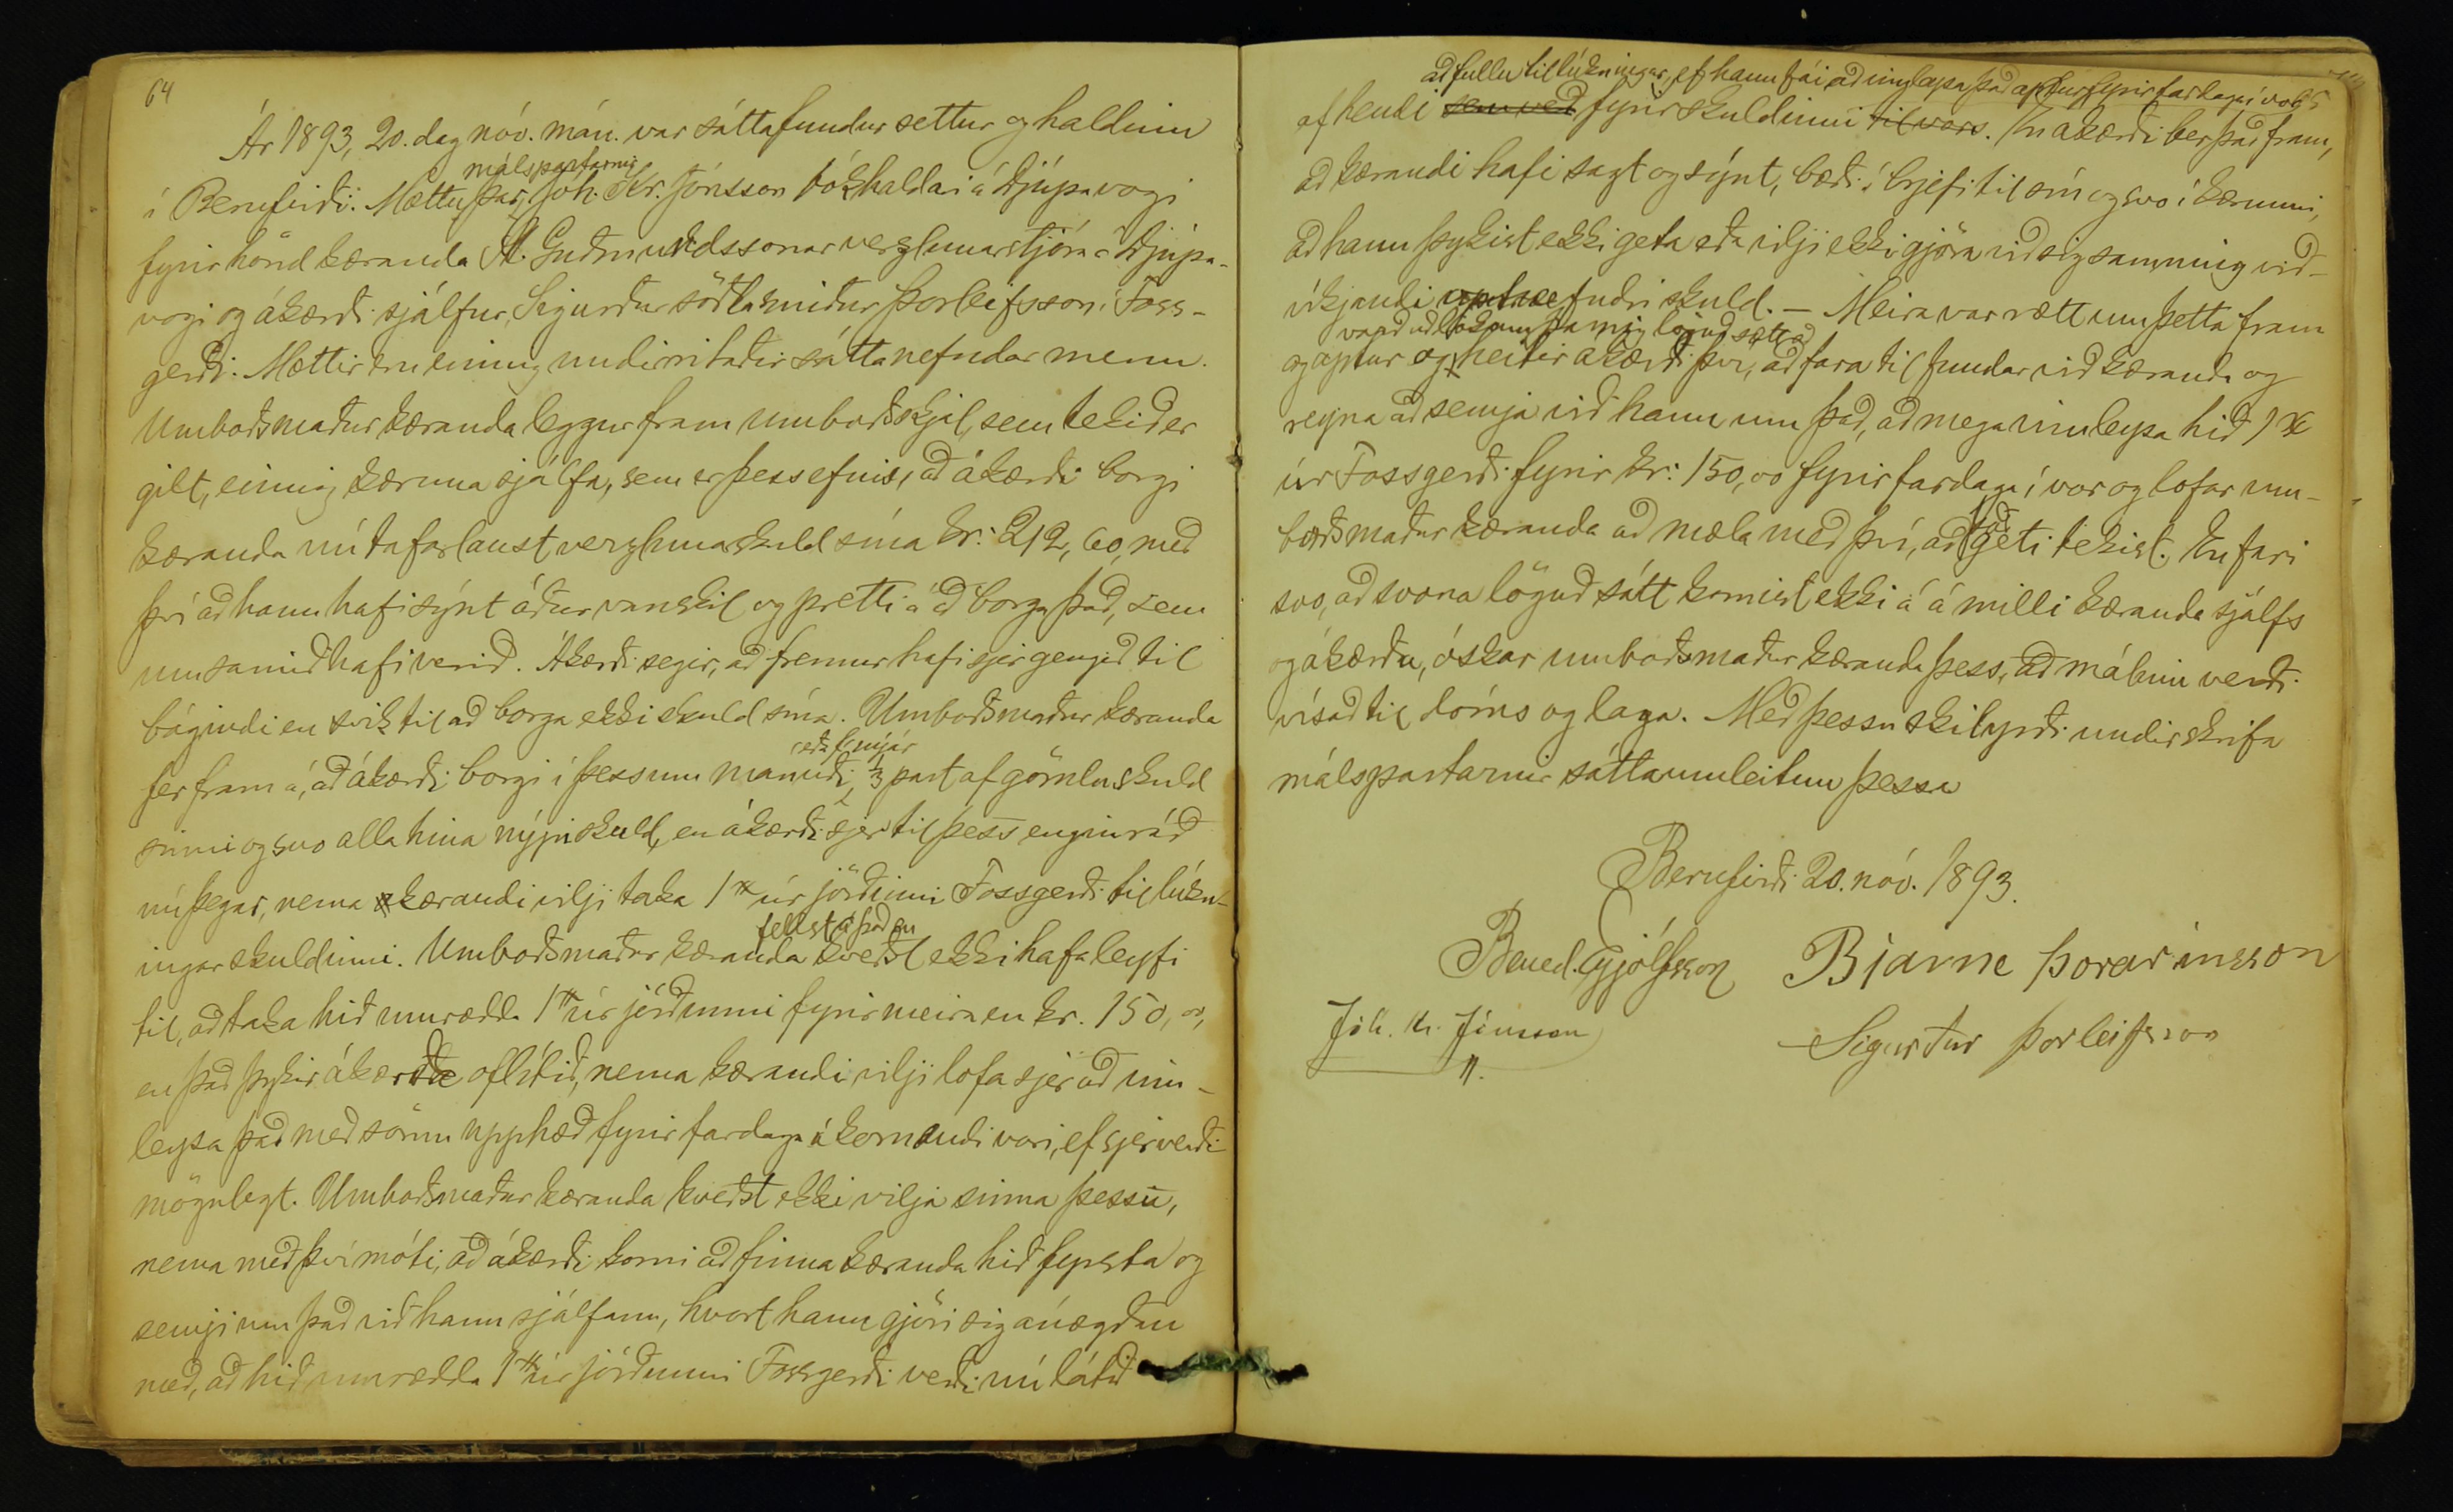 64
Ár 1893, 20. dag nóv. mán. var sáttafundur settur og haldinn
málspartarnir
í Berufirði. Mættu þar, Jóh. Kr. Jónsson bókhaldari á Djúpavogi
fyrir hönd kæranda St. Guðmundssonar verzlunarstjóra á Djúpa-
vogi og ákærði sjálfur, Sigurður söðlasmiður Þorleifsson í Foss-
gerði. Mættir eru einnig undirritaðir sáttanefndar menn.
Umboðsmaður kæranda leggur fram umboðsskjal, sem tekið er
gilt, einnig kæruna sjálfa, sem er þess efnis, að ákærði borgi
kæranda nú tafarlaust verzlunarskuld sína kr: 212,60, með
því að hann hafi sýnt áður vanskil og pretti á að borga það, sem
um samið hafi verið. Ákærði segir, að fremur hafi sjer gengið til
bágindi en svik til að borga ekki skuld sína. Umboðsmaður kæranda
eða um nýár
fer fram á, að ákærði borgi í þessum mánuði, 1/3 part af gömlu skuld
sinni og svo alla hina nýju skuld, en ákærði sjer til þess engin ráð
nú þegar, nema kærandi vilji taka 1 H úr jörðinni Fossgerði til lúkn-
fellst á það en
ingar skuldinni. Umboðsmaður kæranda kveðst ekki hafa leyfi
til, að taka hið umrædda 1 H úr jörðunni fyrir meira en kr. 150,00,
en það þykir ákærða oflítið, nema kærandi vilji lofa sjer að inn-
leysa það með sömu upphæð fyrir fardaga á komandi vori, ef sjer verði
mögulegt. Umboðsmaður kæranda kveðst ekki vilja sinna þessu,
nema með því móti, að ákærði komi að finna kæranda hið fyrsta og
semji um það við hann sjálfann, hvort hann gjöri sig ánægðan
með, að hið umrædda 1 H úr jörðunni Fossgerði verði nú látið
að fullu til lúkningar, ef hann fái að innleysa það aptur fyrir fardaga í vor
af hendi sem veð fyrir skuldinni til vors. En ákærði ber það fram,
að kærandi hafi sagt og sýnt, bæði í brjefi til sín og svo í kærunni,
að hann þykist ekki geta eða vilji ekki gjöra við sig samning við-
víkjandi umræddri skuld. – Meira var rætt um þetta fram
varð að lokum þannig löguð sátt, að
og aptur og heitir ákærði því, að fara til fundar við kæranda og
reyna að semja við hann um það, að mega innleysa hið 1 H
úr Fossgerði fyrir kr: 150,00 fyrir fardaga í vor og lofar um-
það
boðsmaður kæranda að mæla með því, að geti tekist. En fari
svo, að svona löguð sátt komist ekki á á milli kæranda sjálfs
og ákærða, óskar umboðsmaður kæranda þess, að málinu verði
vísað til dóms og laga. Með þessu skilyrði undirskrifa
málspartarnir sáttaumleitun þessa
Berufirði 20. nóv. 1893.
Bened. Eyjólfsson Bjarne Þorarinsson
Jóh. Kr. Jónsson Sigurður Þorleifsson